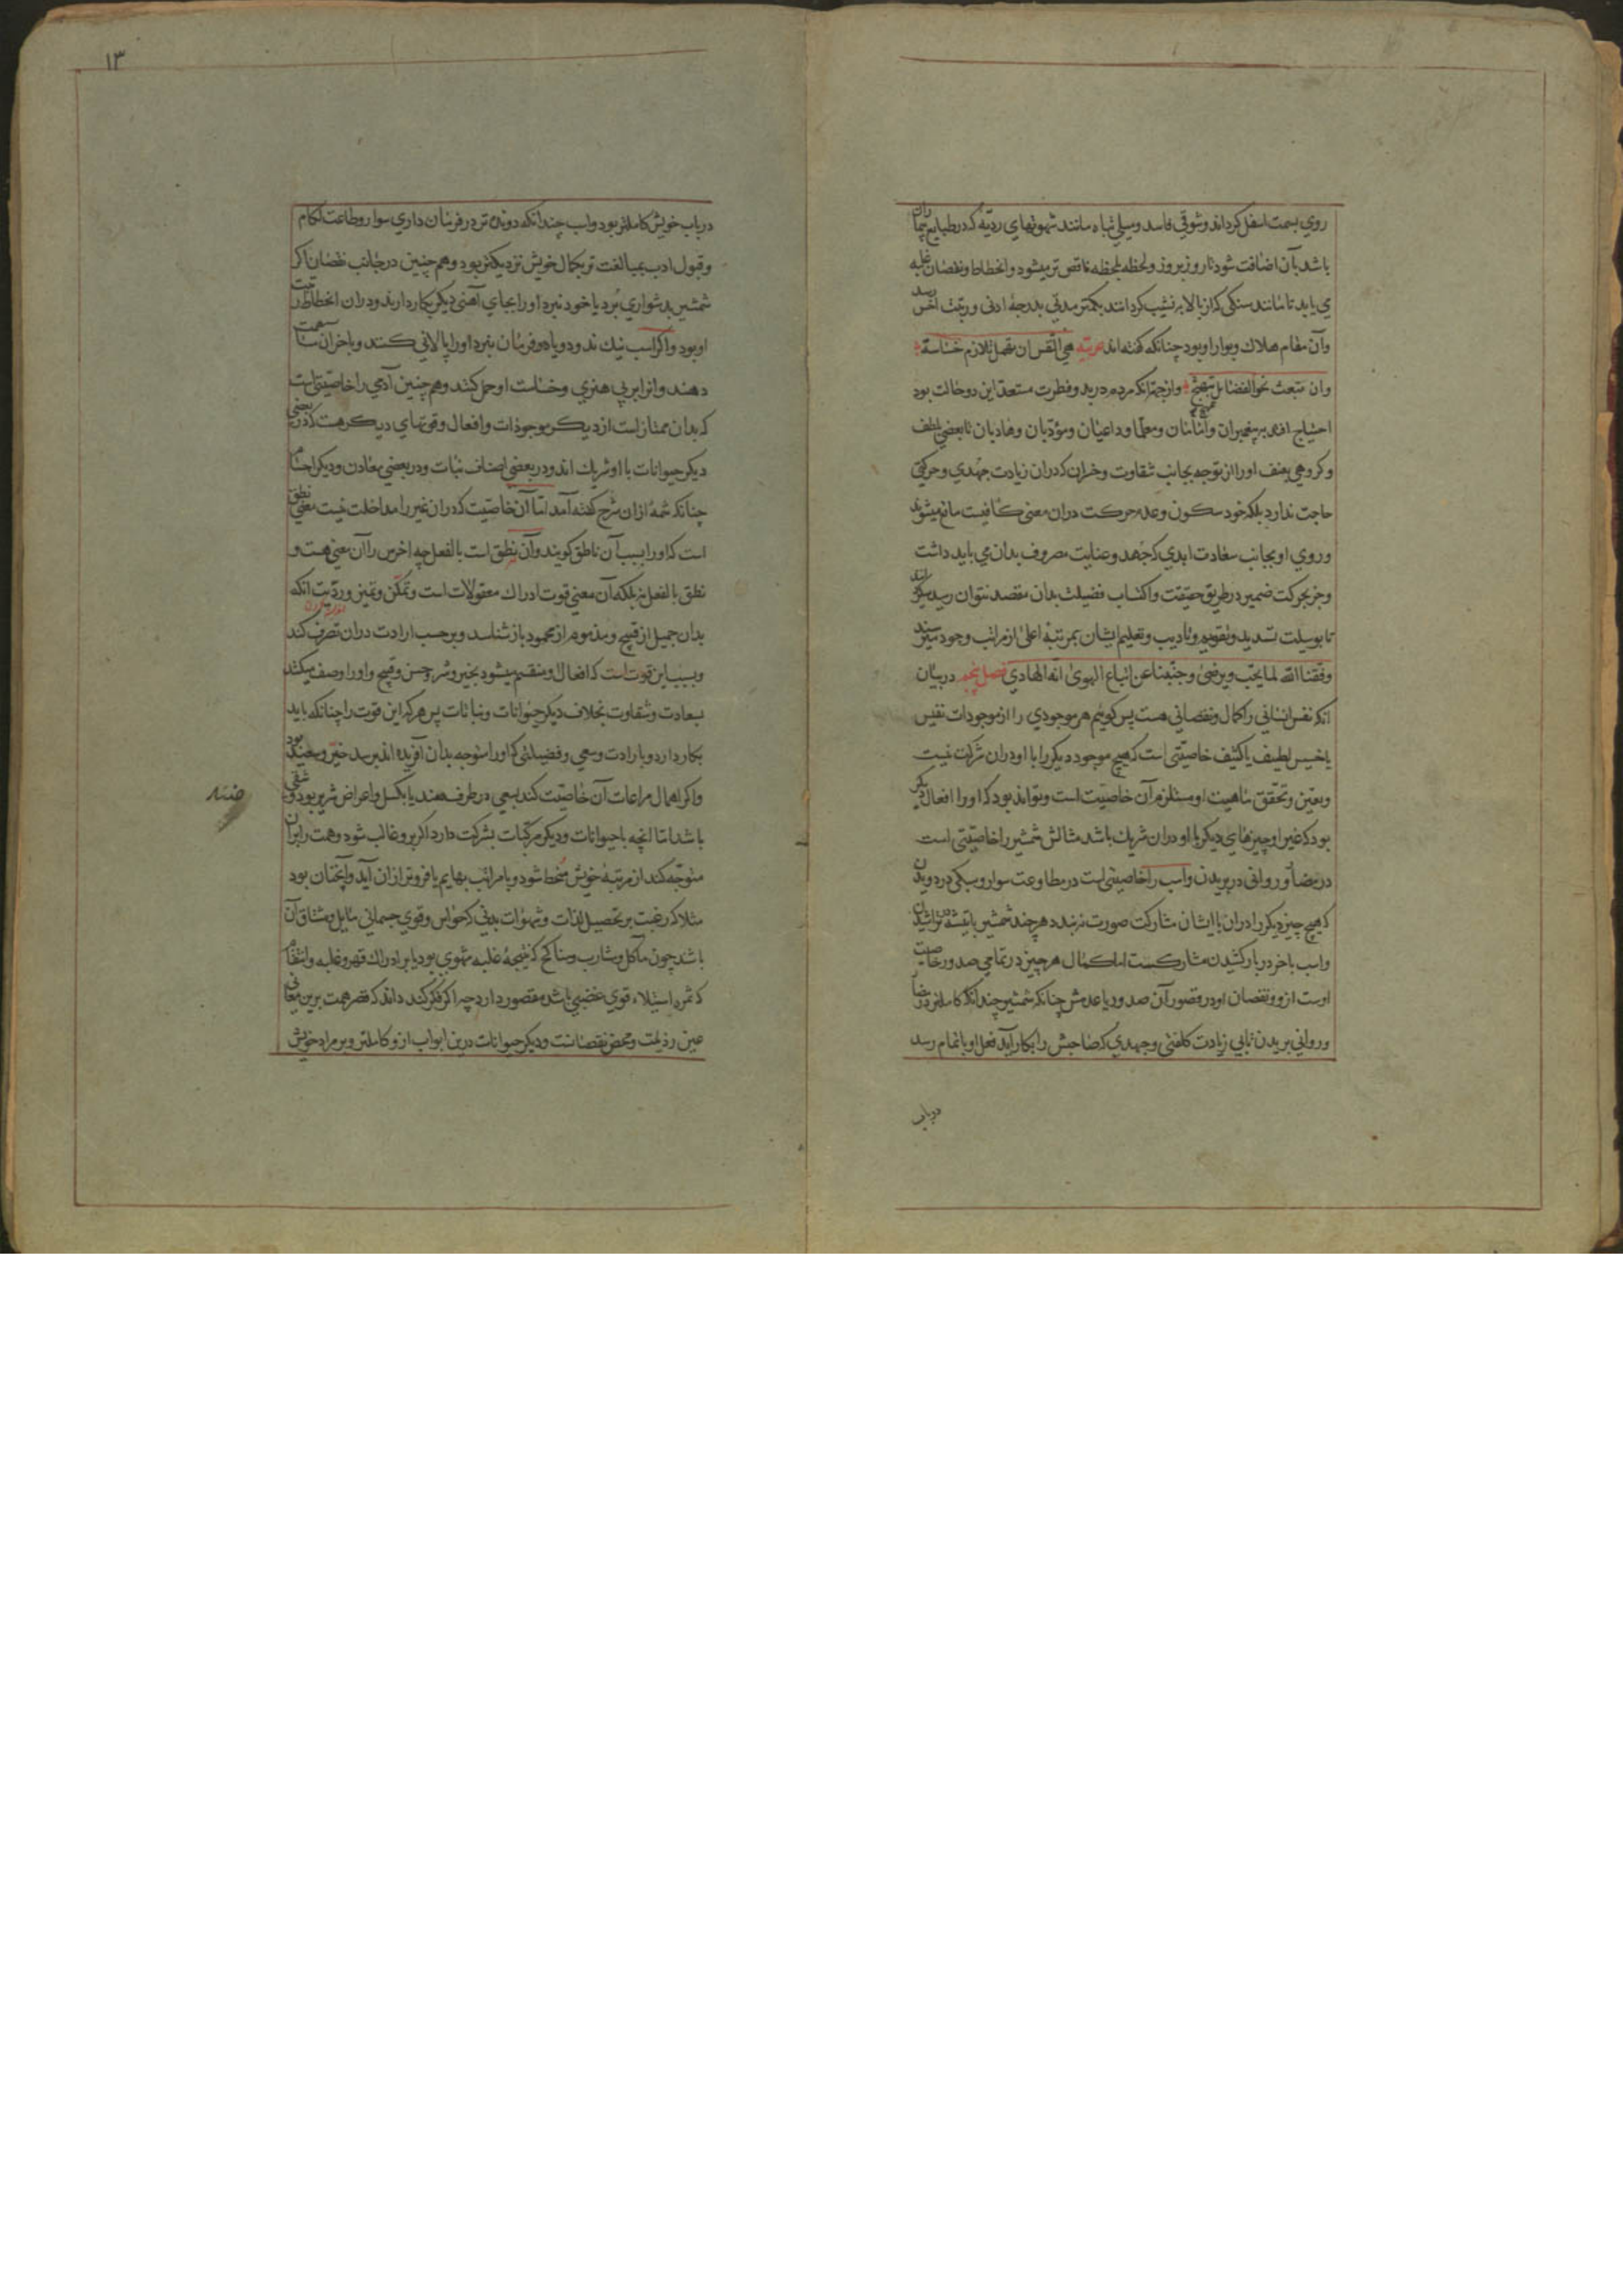 روي بسمت اسفل کرداند وشوقی فاسد ومیلی تباه مانند شهوتهای ردیّه که در طبایع بیماران
باشد بآن اضافت شود تا روز بروز ولحظه بلحظه ناقص تر میشود وانحطاط ونقصان غلبه
می یابد تا مانند سنکی که از بالا به نشیب کردانند بکمتر مدتی بدرجه ادنی ورتبت اخس رسد
وآن مقام هلاک وبوار او بود چنانکه کفته اند عربیّه هی النّفس ان تهمل تلازم خساسة
وان تنبعث نحو الفضایل تبهج وازجهة آنکه مردم در بدو فطرت مستعد این دو حالت بود
احتیاج افتد به پیغمبران وامامان ومعلما وداعیان ومؤدّبان وهادیان تا بعضی بلطف
وکروهی بعنف او را از توجه بجانب شقاوت وخسران که دران زیادت جهدی وحرکتی
حاجت ندارد بلکه خود سکون وعدم حرکت دران معنی کافیست مانع میشوند
وروی او بجانب سعادت ابدی که جهد وعنایت مصروف بدان می باید داشت
وجز بحرکت ضمیر در طریق حقیقت واکتساب فضیلت بدان مقصد نتوان رسید میکردانند
تا بوسیلت تسدید وتقویم وتادیب وتعلیم ایشان بمرتبۀ اعلی از مراتب وجود میرسند
وفقنا الله لما یحبّ ویرضی وجنّبنا عن اتباع الهوی انه الهادی فصل پنجم در بیان
آنکه نفس انسانی را کمال ونقصانی هست پس کوییم هر موجودی را از موجودات نفیس
یا خسیس لطیف یا کثیف خاصیّتی است که هیچ موجود دیکر را با او دران شرکت نیست
وتعیّن وتحقق ماهیت او مستلزم آن خاصیّت است وتواند بود که او را افعال دیکر
بود که غیر او چیزهای دیکر با او دران شریک باشد مثالش شمشیر را خاصیّتی است
در مضا وروانی در بریدن واسب را خاصیتی است در مطاوعت سوار وسبکی در دویدن
که هیچ چیز دیکر را دران با ایشان مشارکت صورت نه بندد هر چند شمشیر با تیشه در تراشیدن
واسب با خر در بار کشیدن مشارکست اما کمال هر چیز در تمامی صدور خاصیت
اوست ازو ونقصان او در قصور آن صدور یا عدمش چنانکه شمشیر چندانکه کاملتر در مضا
وروانی بریدن تا بی زیادت کلفتی وجهدی که صاحبش را بکار آید فعل او باتمام رسد
در باب
۱۳
در باب خویش کاملتر بود واسب چندانکه دونده تر در فرمان داری سوار وطاعت لکام
وقبول ادب بمبالغت تر بکمال خویش نزدیکتر بود وهم چنین در جانب نقصان اکر
شمشیر بدشواری بُرد یا خود نبرد او را بجای آهنی دیکر بکار دارند ودران انحطاط رتبت
او بود واکر اسب نیک ندود ویا فرمان نبرد او را پالانی کنند وبا خران مساهمت
دهند وانرا بر بی هنری وخساست او حمل کنند وهم چنین آدمی را خاصیّتی است
که بدان ممتاز است از دیکر موجودات وافعال وقوتهای دیکر هست که در بعضی
دیکر حیوانات با او شریک اند ودر بعضی اصناف نبات ودر بعضی معادن ودیکر اجسام
چنانکه شمۀ ازان شرح کفته آمد امّا آن خاصیّت که دران غیر را مداخلت نیست معنی نطق
است که او را بسبب آن ناطق کویند وآن نطق است بالفعل چه اخرس را آن معنی هست و
نطق بالفعل نه بلکه آن معنی قوت ادراک معقولات است وتمکّن وتمیز ورویّت انکه
بدان جمیل از قبیح ومذموم از محمود باز شناسد وبر حسب ارادت دران تصرف کند
وبسبب این قوت است که افعال او منقسم میشود بخیر وشر وحسن وقبیح واو را وصف میکنند
بسعادت وشقاوت بخلاف دیکر حیوانات ونباتات پس هر که این قوت را چنانکه باید
بکار دارد وبارادت وسعی وفضیلتی که او را متوجه بدان آفریده اند برسد خیّر وسعید بود
واکر اهمال مراعات آن خاصیّت کند بسعی در طرف ضد یا بکسل واعراض شریر بود وشقی
باشد امّا انچه با حیوانات ودیکر مرکّبات بشرکت دارد اکر برو غالب شود وهمت را بران
متوجّه کند از مرتبۀ خویش منحط شود وبا مراتب بهایم یا فروتر ازان آید وآنچنان بود
مثلا که رغبت بر تحصیل لذّات وشهوات بدنی که حواس وقوی جسمانی مایل ومشتاق آن
باشد چون مآکل ومشارب ومناکح که نتیجۀ غلبه شهوی بود یا بر ادراک قهر وغلبه وانتقام
که ثمره استیلاء قوی غضبی باشد مقصور دارد چه اکر فکر کند داند که قصر همت برین معانی
عین رذیلت ومحض نقصانست ودیکر حیوانات درین ابواب ازو کاملتر وبر مراد خویش
ضد